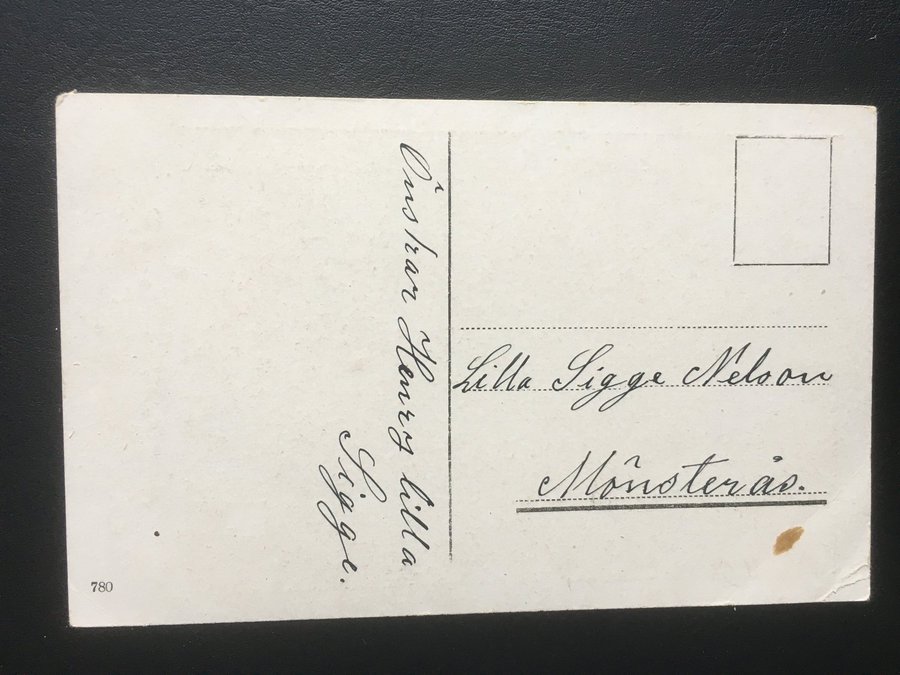 Önskar Henrs lilla
Sigge.
Lilla Sigge Nelson
Mönsterås.
780